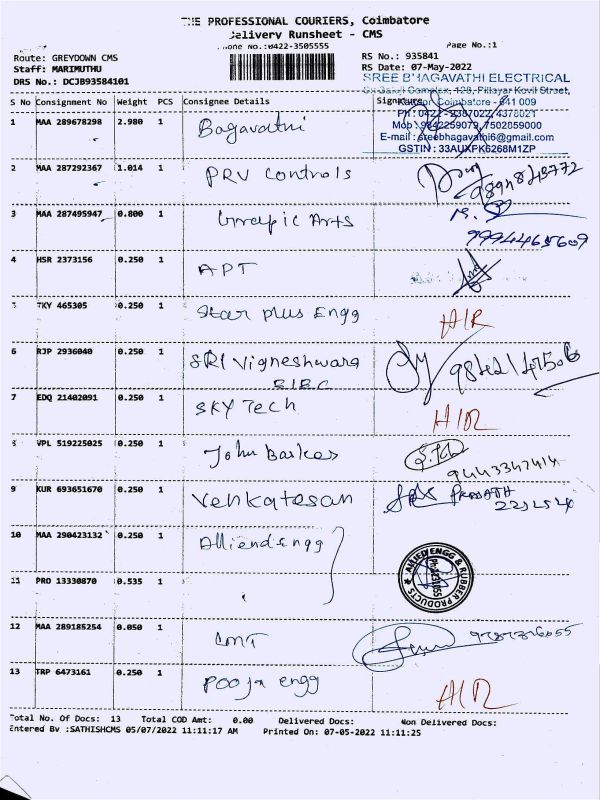 THE PROFESSIONAL COURIERS, Coimbatore
Delivery Runsheet - CMS
Phone No.:0422-3505555
Page No.:1
Route: GREYDOWN CMS
RS No.: 935841
Staff: MARIMUTHU
RS Date: 07-May-2022
DRS No.: DCJB93584101
SREE BHAGAVATHI ELECTRICAL
Complex, 128, Pillayar Kovil Street,
S No Consignment No Weight PCS Consignee Details Signature
Coimbatore - 641 009
1 MAA 289678298 2.980 1 Bagavathi
E-mail : sreebhagavathi6@gmail.com
GSTIN : 33AUXPK6268M1ZP
2 MAA 287292367 1.014 1 PRV Controls
3 MAA 287495947 0.800 1 Grapic Arts
99944465609
4 HSR 2373156 0.250 1 APT
5 TKY 465305 0.250 1 Star plus Engg A/R
6 RJP 2936040 0.250 1 SRI Vigneshwara
7 EDQ 21402091 0.250 1 SKY Tech
8 VPL 519225025 0.250 1 John Baskar
9443347414
9 KUR 693651670 0.250 1 Venkatesan
10 MAA 290423132 0.250 1 Alliendengg
ALLIED ENGG & RUBBER PRODUCTS
11 PRO 13330870 0.535 1
12 MAA 289185254 0.050 1 CMT
13 TRP 6473161 0.250 1 Pooja engg
Total No. Of Docs: 13 Total COD Amt: 0.00 Delivered Docs: Non Delivered Docs:
Entered By :SATHISHCMS 05/07/2022 11:11:17 AM Printed On: 07-05-2022 11:11:25